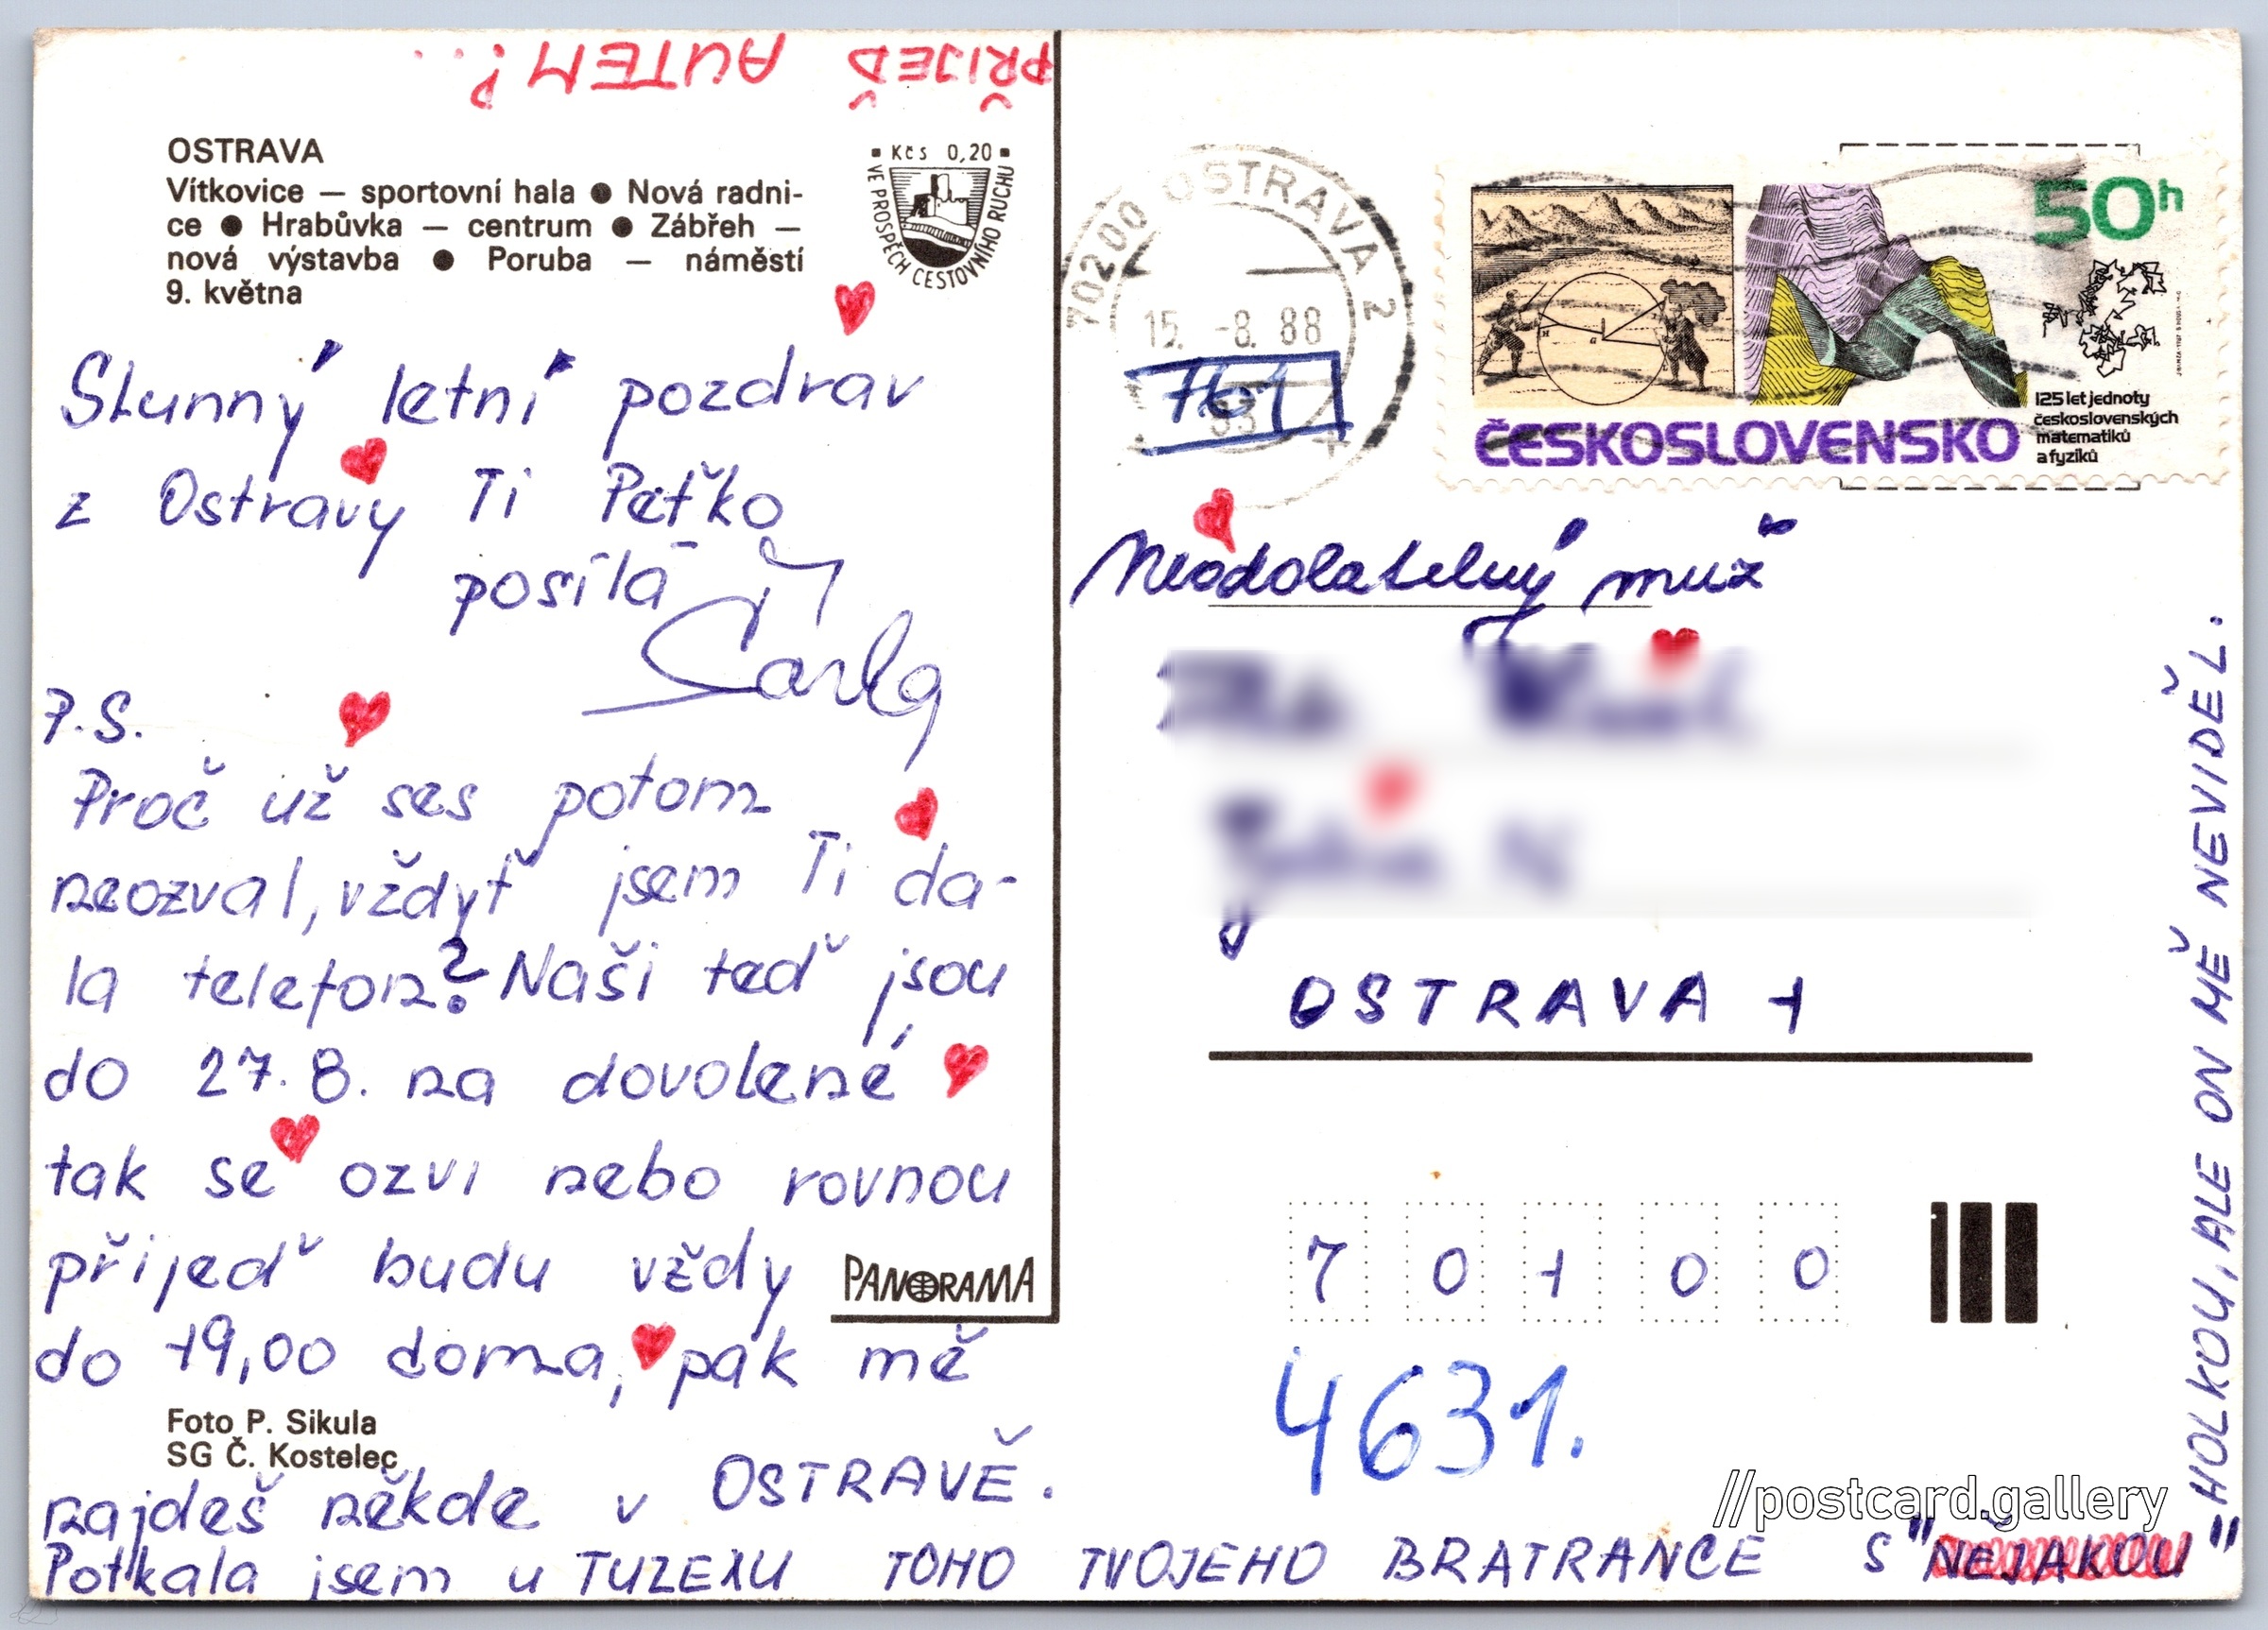 PŘIJEĎ AUTEM?...
OSTRAVA
Vítkovice — sportovní hala ● Nová radni-
ce ● Hrabůvka — centrum ● Zábřeh —
nová výstavba ● Poruba — náměstí
9. května
▪ Kčs 0,20 ▪
VE PROSPĚCH CESTOVNÍHO RUCHU
Slunný letní pozdrav
z Ostravy Ti Peťko
posílá
Šárka
P.S.
Proč už ses potom
neozval, vždyť jsem Ti da-
la telefon? Naši teď jsou
do 27.8. na dovolené
tak se ozvi nebo rovnou
přijeď budu vždy
do 19,00 doma, pak mě
PANORAMA
Foto P. Sikula
SG Č. Kostelec
najdeš někde v OSTRAVĚ.
Potkala jsem u TUZEXU TOHO TVOJEHO BRATRANCE S "NĚJAKOU"
HOLKOU, ALE ON MĚ NEVIDĚL.
70200 OSTRAVA 2
15. -8. 88
761
50h
125 let jednoty
československých
matematiků
a fyziků
ČESKOSLOVENSKO
Neodolatelný muž
OSTRAVA 1
70100
4631.
//postcard.gallery